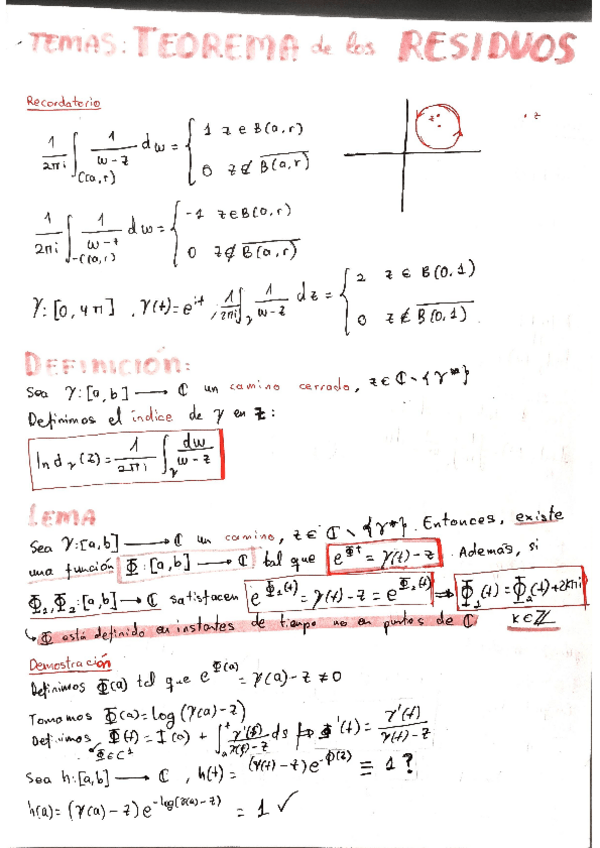 TEMA5: TEOREMA de los RESIDUOS
Recordatorio
1/2πi ∫_{C(a,r)} 1/(w-z) dw = { 1 z ∈ B(a,r)
0 z ∉ \overline{B(a,r)}
z
z
1/2πi ∫_{-C(a,r)} 1/(w-z) dw = { -1 z ∈ B(0,r)
0 z ∉ \overline{B(a,r)}
γ: [0, 4π] , γ(t) = e^{it} , 1/2πi ∫_γ 1/(w-z) dz = { 2 z ∈ B(0,1)
0 z ∉ \overline{B(0,1)}
DEFINICIÓN:
Sea γ: [a,b] ⟶ ℂ un camino cerrado, z ∈ ℂ \ {γ*}
Definimos el índice de γ en z:
Ind_γ(z) = 1/2πi ∫_γ dw/(w-z)
LEMA
Sea γ: [a,b] ⟶ ℂ un camino, z ∈ ℂ \ {γ*}. Entonces, existe
una función Φ: [a,b] ⟶ ℂ tal que e^{Φt} = γ(t) - z. Además, si
Φ₁, Φ₂: [a,b] ⟶ ℂ satisfacen e^{Φ₁(t)} = γ(t) - z = e^{Φ₂(t)} ⟹ Φ₁(t) = Φ₂(t) + 2kπi
k ∈ ℤ
↳ Φ está definido en instantes de tiempo no en puntos de ℂ
Demostración
Definimos Φ(a) tal que e^{Φ(a)} = γ(a) - z ≠ 0
Tomamos Φ(a) = log(γ(a) - z)
Definimos Φ(t) = Φ(a) + ∫_a^t γ'(s)/(γ(s)-z) ds ⟹ Φ'(t) = γ'(t)/(γ(t)-z)
Φ ∈ C¹
Sea h: [a,b] ⟶ ℂ , h(t) = (γ(t) - z) e^{-Φ(z)} ≡ 1 ?
h(a) = (γ(a) - z) e^{-log(γ(a)-z)} = 1 ✓